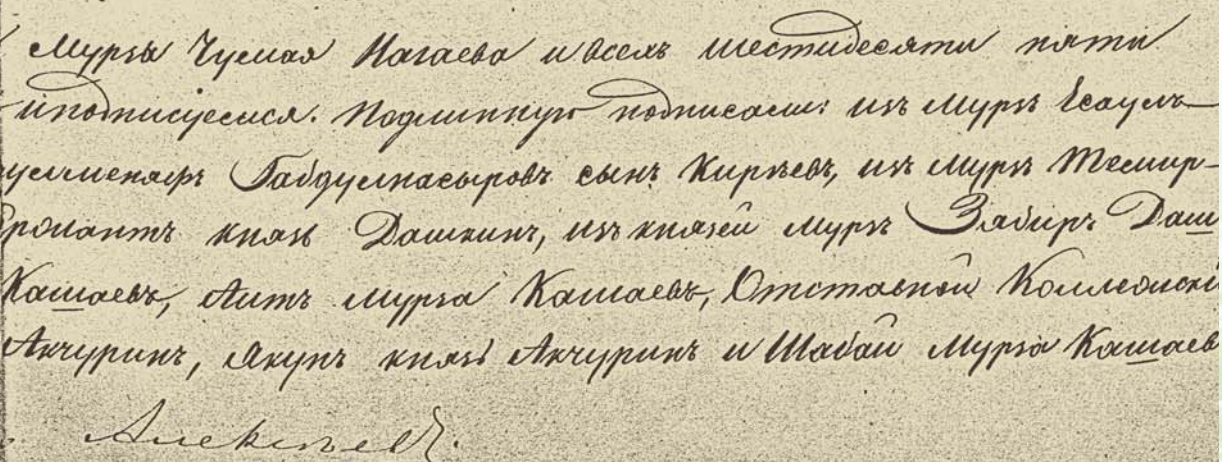 Мурзы Чумая Нагаева и всехъ шестидесяти пяти
иподписуемся. Подлинную подписали: изъ Мурзъ Есаулъ
Габдулнасыровъ сынъ Киреевъ, изъ Мурзъ Темир-
князь Дашкинъ, изъ князей мурзъ Зябиръ Даш
Кашаевъ, Аитъ мурза Кашаевъ, Отставной Коллежскі
Акчуринъ, Якупъ князь Акчуринъ и Шабай Мурза Кашаев
Алексѣевъ.